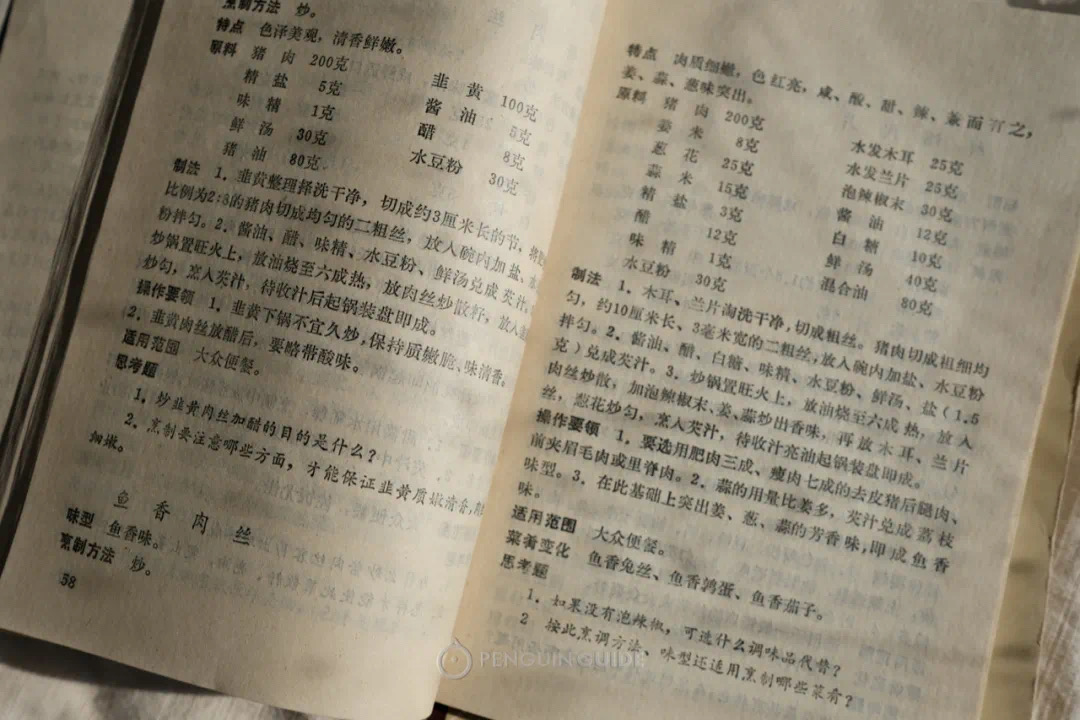 烹制方法 炒。
特点 色泽美观，清香鲜嫩。
原料 猪肉 200克 韭黄 100克
精盐 5克 酱油 5克
味精 1克 醋 8克
鲜汤 30克 水豆粉 30克
猪油 80克
制法 1．韭黄整理择洗干净，切成约3厘米长的节，将肥
比例为2:8的猪肉切成均匀的二粗丝，放入碗内加盐、水
粉拌匀。2．酱油、醋、味精、水豆粉、鲜汤兑成芡汁。
炒锅置旺火上，放油烧至六成热，放肉丝炒散籽，放入韭
炒匀，烹入芡汁，待收汁后起锅装盘即成。
操作要领 1．韭黄下锅不宜久炒，保持质嫩脆、味清香。
2．韭黄肉丝放醋后，要略带酸味。
适用范围 大众便餐。
思考题
1．炒韭黄肉丝加醋的目的是什么？
2．烹制要注意哪些方面，才能保证韭黄质嫩清香，
细嫩。
鱼香肉丝
味型 鱼香味。
烹制方法 炒。
58
特点 肉质细嫩，色红亮，咸、酸、甜、辣、兼而有之，
姜、蒜、葱味突出。
原料 猪肉 200克 水发木耳 25克
姜米 8克 水发兰片 25克
葱花 25克 泡辣椒末 30克
蒜米 15克 酱油 12克
精盐 3克 白糖 10克
醋 12克 鲜汤 40克
味精 1克 混合油 80克
水豆粉 30克
制法 1．木耳、兰片淘洗干净，切成粗丝。猪肉切成粗细均
匀，约10厘米长、3毫米宽的二粗丝，放入碗内加盐、水豆粉
拌匀。2．酱油、醋、白糖、味精、水豆粉、鲜汤、盐（1.5
克）兑成芡汁。3．炒锅置旺火上，放油烧至六成热，放入
肉丝炒散，加泡辣椒末、姜、蒜炒出香味，再放木耳、兰片
丝，葱花炒匀，烹入芡汁，待收汁亮油起锅装盘即成。
操作要领 1．要选用肥肉三成、瘦肉七成的去皮猪后腿肉、
前夹眉毛肉或里脊肉。2．蒜的用量比姜多，芡汁兑成荔枝
味型。3．在此基础上突出姜、葱、蒜的芳香味，即成鱼香
味。
适用范围 大众便餐。
菜肴变化 鱼香兔丝、鱼香鹑蛋、鱼香茄子。
思考题
1．如果没有泡辣椒，可选什么调味品代替？
2 按此烹调方法、味型还适用烹制哪些菜肴？
PENGUIN GUIDE